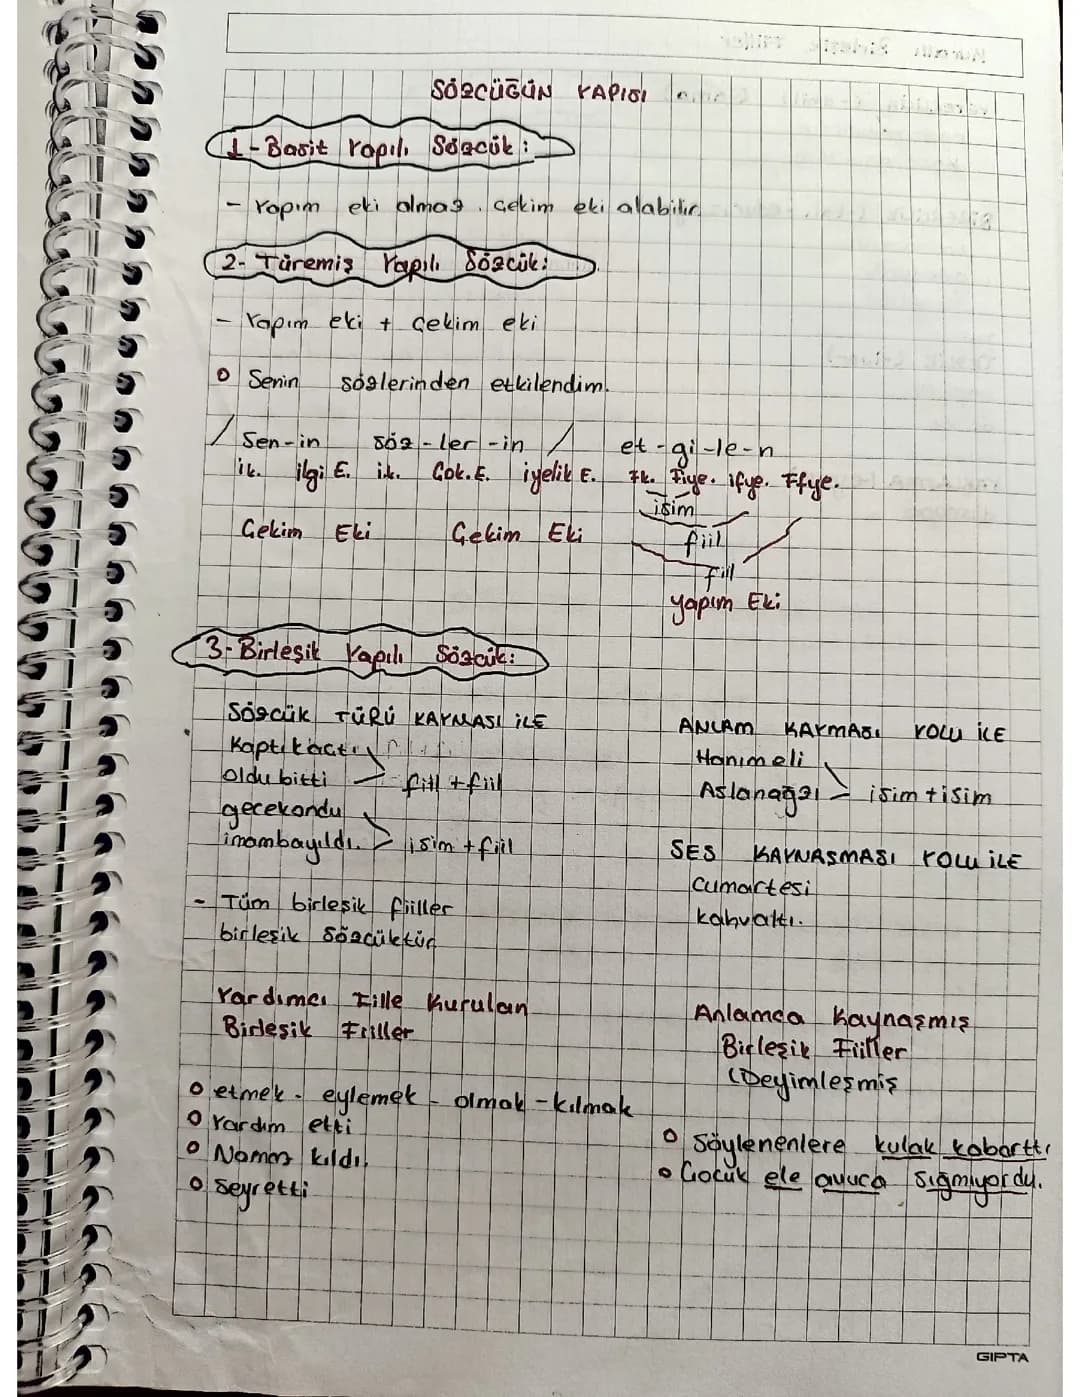 SÖZCÜĞÜN YAPISI
1-Basit Yapılı Sözcük:
- Yapım eki almaz. Çekim eki alabilir.
2- Türemiş Yapılı Sözcük:
- Yapım eki + Çekim eki
Senin sözlerinden etkilendim.
/ Sen-in söz-ler-in / et-gi-le-n
ik. ilgi E. ik. Çok.E. iyelik E. Fk. Fiye. ifye. Ffye.
isim
Çekim Eki Çekim Eki fiil
fiil
yapım Eki
3-Birleşik Yapılı Sözcük:
SÖZCÜK TÜRÜ KAYMASI İLE
Kaptıkaçtı
oldu bitti > fiil + fiil
gecekondu
imambayıldı. > isim + fiil
- Tüm birleşik fiiller
birleşik sözcüktür
ANLAM KAYMASI YOLU İLE
Hanımeli
Aslanağzı > isim + isim
SES KAYNAŞMASI YOLU İLE
Cumartesi
kahvaltı.
Yardımcı Fiille Kurulan
Birleşik Fiiller
etmek - eylemek - olmak - kılmak
Yardım etti
Namaz kıldı.
Seyretti
Anlamca Kaynaşmış
Birleşik Fiiller
(Deyimleşmiş
Söylenenlere kulak kabarttı
Çocuk ele avuca sığmıyordu.
GIPTA